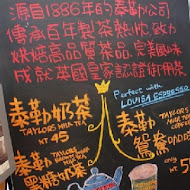 源自1886年的泰勒公司
傳承百年製茶熱忱致力
烘焙高品質茶品.完美風味
成就英國皇家認證御用茶
Perfect with
LOUISA ESPRESSO
泰勒奶茶
TAYLORS MILK TEA
45
泰勒
TAYLORS
鴛鴦咖啡
泰勒
黑糖奶茶